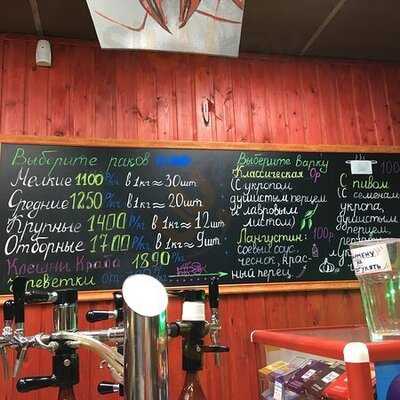 Выберите раков
Мелкие 1100 р/кг в 1кг ≈ 30шт
Средние 1250 р/кг в 1кг ≈ 20шт
Крупные 1400 р/кг в 1кг ≈ 12шт
Отборные 1700 р/кг в 1кг ≈ 9шт
Клешни Краба 1890 р/кг
реветки от
Выберите варку
Классическая 0р
(с укропом
душистым перцем
и лавровым
листом)
Лангустин: 100р
соевый соус,
чеснок, крас-
ный перец
100
С пивом
(С семенами
укропа,
душистым
перцем,
меню